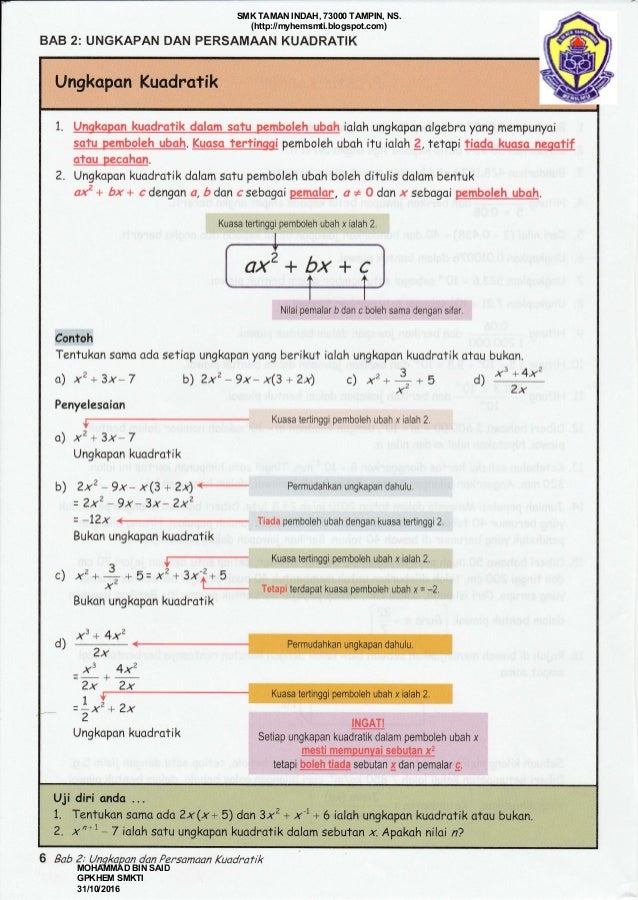 SMK TAMAN INDAH, 73000 TAMPIN, NS.
(http://myhemsmti.blogspot.com)
BAB 2: UNGKAPAN DAN PERSAMAAN KUADRATIK
Ungkapan Kuadratik
1. Ungkapan kuadratik dalam satu pemboleh ubah ialah ungkapan algebra yang mempunyai
satu pemboleh ubah. Kuasa tertinggi pemboleh ubah itu ialah 2, tetapi tiada kuasa negatif
atau pecahan.
2. Ungkapan kuadratik dalam satu pemboleh ubah boleh ditulis dalam bentuk
ax² + bx + c dengan a, b dan c sebagai pemalar, a ≠ 0 dan x sebagai pemboleh ubah.
Kuasa tertinggi pemboleh ubah x ialah 2.
ax² + bx + c
Nilai pemalar b dan c boleh sama dengan sifar.
Contoh
Tentukan sama ada setiap ungkapan yang berikut ialah ungkapan kuadratik atau bukan.
a) x² + 3x – 7 b) 2x² – 9x – x(3 + 2x) c) x² + 3/x² + 5 d) (x³ + 4x²)/2x
Penyelesaian
Kuasa tertinggi pemboleh ubah x ialah 2.
a) x² + 3x – 7
Ungkapan kuadratik
b) 2x² – 9x – x(3 + 2x) Permudahkan ungkapan dahulu.
= 2x² – 9x – 3x – 2x²
= –12x Tiada pemboleh ubah dengan kuasa tertinggi 2.
Bukan ungkapan kuadratik
Kuasa tertinggi pemboleh ubah x ialah 2.
c) x² + 3/x² + 5 = x² + 3x⁻² + 5
Tetapi terdapat kuasa pemboleh ubah x = –2.
Bukan ungkapan kuadratik
d) (x³ + 4x²)/2x Permudahkan ungkapan dahulu.
= x³/2x + 4x²/2x
Kuasa tertinggi pemboleh ubah x ialah 2.
= 1/2 x² + 2x
Ungkapan kuadratik
INGAT!
Setiap ungkapan kuadratik dalam pemboleh ubah x
mesti mempunyai sebutan x²
tetapi boleh tiada sebutan x dan pemalar c.
Uji diri anda ...
1. Tentukan sama ada 2x(x + 5) dan 3x² + x⁻¹ + 6 ialah ungkapan kuadratik atau bukan.
2. xⁿ⁺¹ – 7 ialah satu ungkapan kuadratik dalam sebutan x. Apakah nilai n?
6 Bab 2: Ungkapan dan Persamaan Kuadratik
MOHAMMAD BIN SAID
GPKHEM SMKTI
31/10/2016